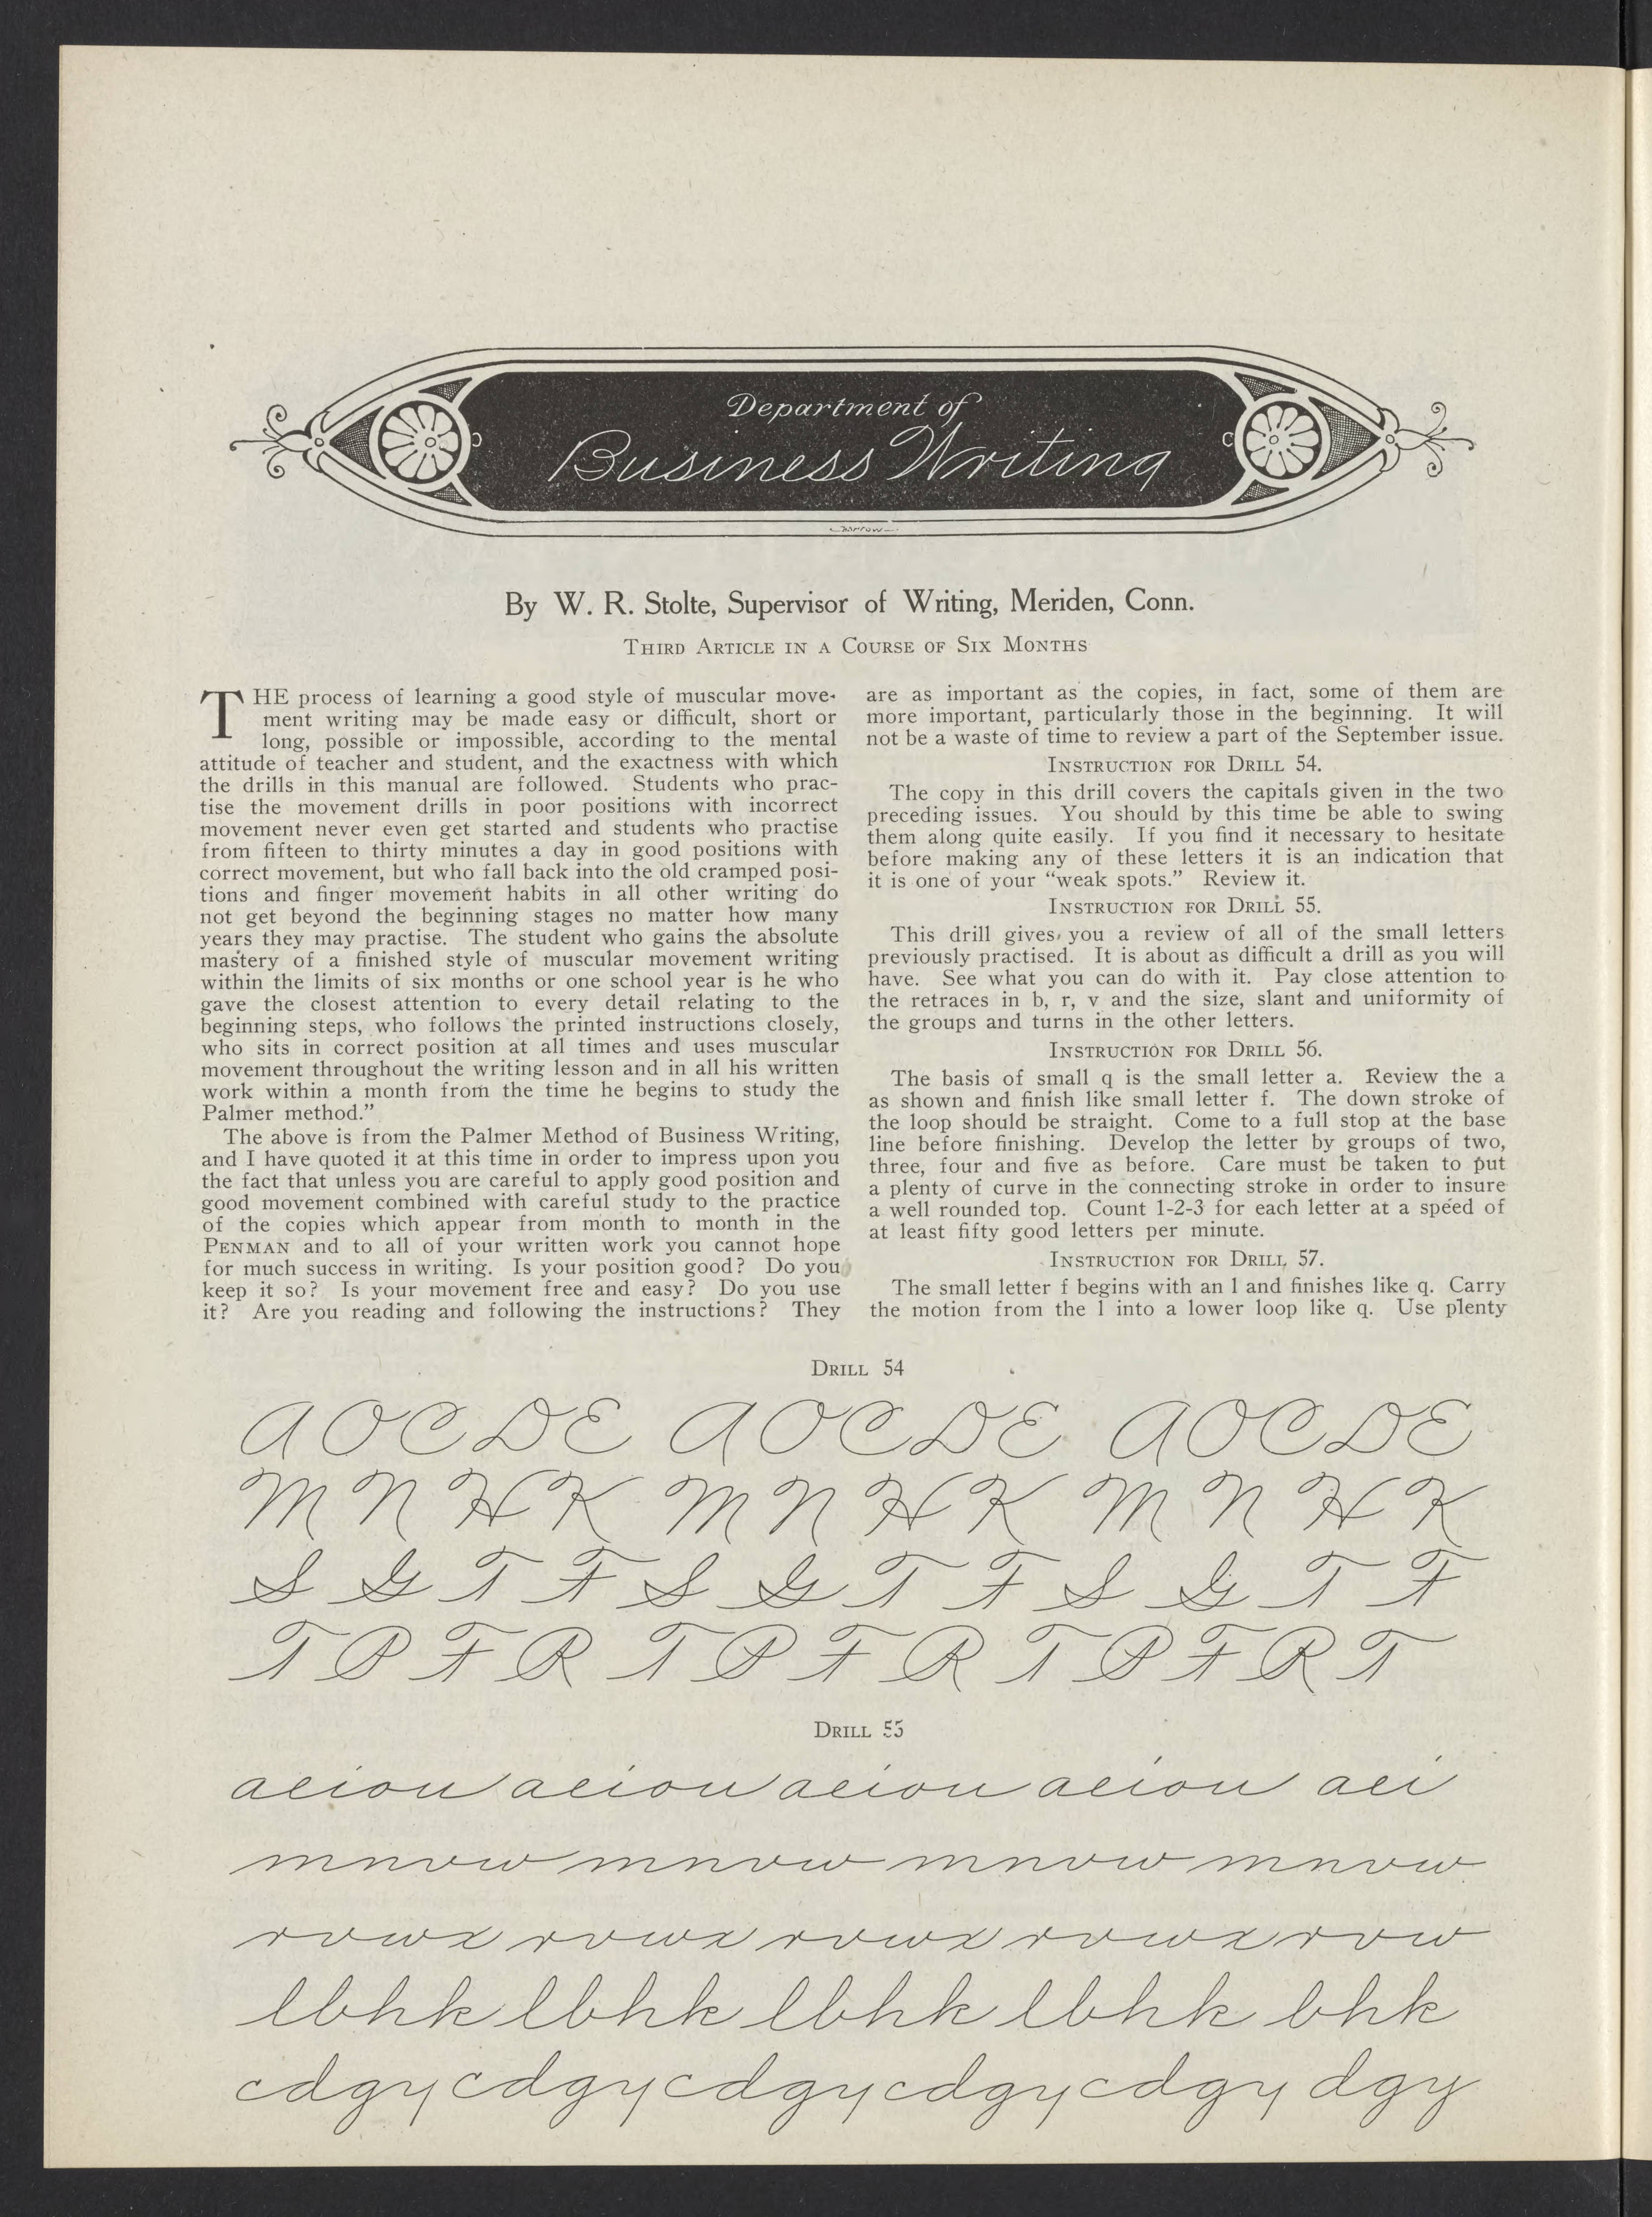 Department of
Business Writing
By W. R. Stolte, Supervisor of Writing, Meriden, Conn.
THIRD ARTICLE IN A COURSE OF SIX MONTHS
THE process of learning a good style of muscular move-
ment writing may be made easy or difficult, short or
long, possible or impossible, according to the mental
attitude of teacher and student, and the exactness with which
the drills in this manual are followed. Students who prac-
tise the movement drills in poor positions with incorrect
movement never even get started and students who practise
from fifteen to thirty minutes a day in good positions with
correct movement, but who fall back into the old cramped posi-
tions and finger movement habits in all other writing do
not get beyond the beginning stages no matter how many
years they may practise. The student who gains the absolute
mastery of a finished style of muscular movement writing
within the limits of six months or one school year is he who
gave the closest attention to every detail relating to the
beginning steps, who follows the printed instructions closely,
who sits in correct position at all times and uses muscular
movement throughout the writing lesson and in all his written
work within a month from the time he begins to study the
Palmer method.”
The above is from the Palmer Method of Business Writing,
and I have quoted it at this time in order to impress upon you
the fact that unless you are careful to apply good position and
good movement combined with careful study to the practice
of the copies which appear from month to month in the
PENMAN and to all of your written work you cannot hope
for much success in writing. Is your position good? Do you
keep it so? Is your movement free and easy? Do you use
it? Are you reading and following the instructions? They
are as important as the copies, in fact, some of them are
more important, particularly those in the beginning. It will
not be a waste of time to review a part of the September issue.
INSTRUCTION FOR DRILL 54.
The copy in this drill covers the capitals given in the two
preceding issues. You should by this time be able to swing
them along quite easily. If you find it necessary to hesitate
before making any of these letters it is an indication that
it is one of your “weak spots.” Review it.
INSTRUCTION FOR DRILL 55.
This drill gives you a review of all of the small letters
previously practised. It is about as difficult a drill as you will
have. See what you can do with it. Pay close attention to
the retraces in b, r, v and the size, slant and uniformity of
the groups and turns in the other letters.
INSTRUCTION FOR DRILL 56.
The basis of small q is the small letter a. Review the a
as shown and finish like small letter f. The down stroke of
the loop should be straight. Come to a full stop at the base
line before finishing. Develop the letter by groups of two,
three, four and five as before. Care must be taken to put
a plenty of curve in the connecting stroke in order to insure
a well rounded top. Count 1-2-3 for each letter at a speed of
at least fifty good letters per minute.
INSTRUCTION FOR DRILL 57.
The small letter f begins with an l and finishes like q. Carry
the motion from the l into a lower loop like q. Use plenty
DRILL 54
A O C D E A O C D E A O C D E
M N H K M N H K M N H K
S G T F S G T F S G T F
T P F R T P F R T P F R T
DRILL 55
aeiou aeiou aeiou aeiou aei
mnvw mnvw mnvw mnvw
rvwx rvwx rvwx rvwx rvw
lbhk lbhk lbhk lbhk bhk
cdgy cdgy cdgy cdgy cdgy dgy